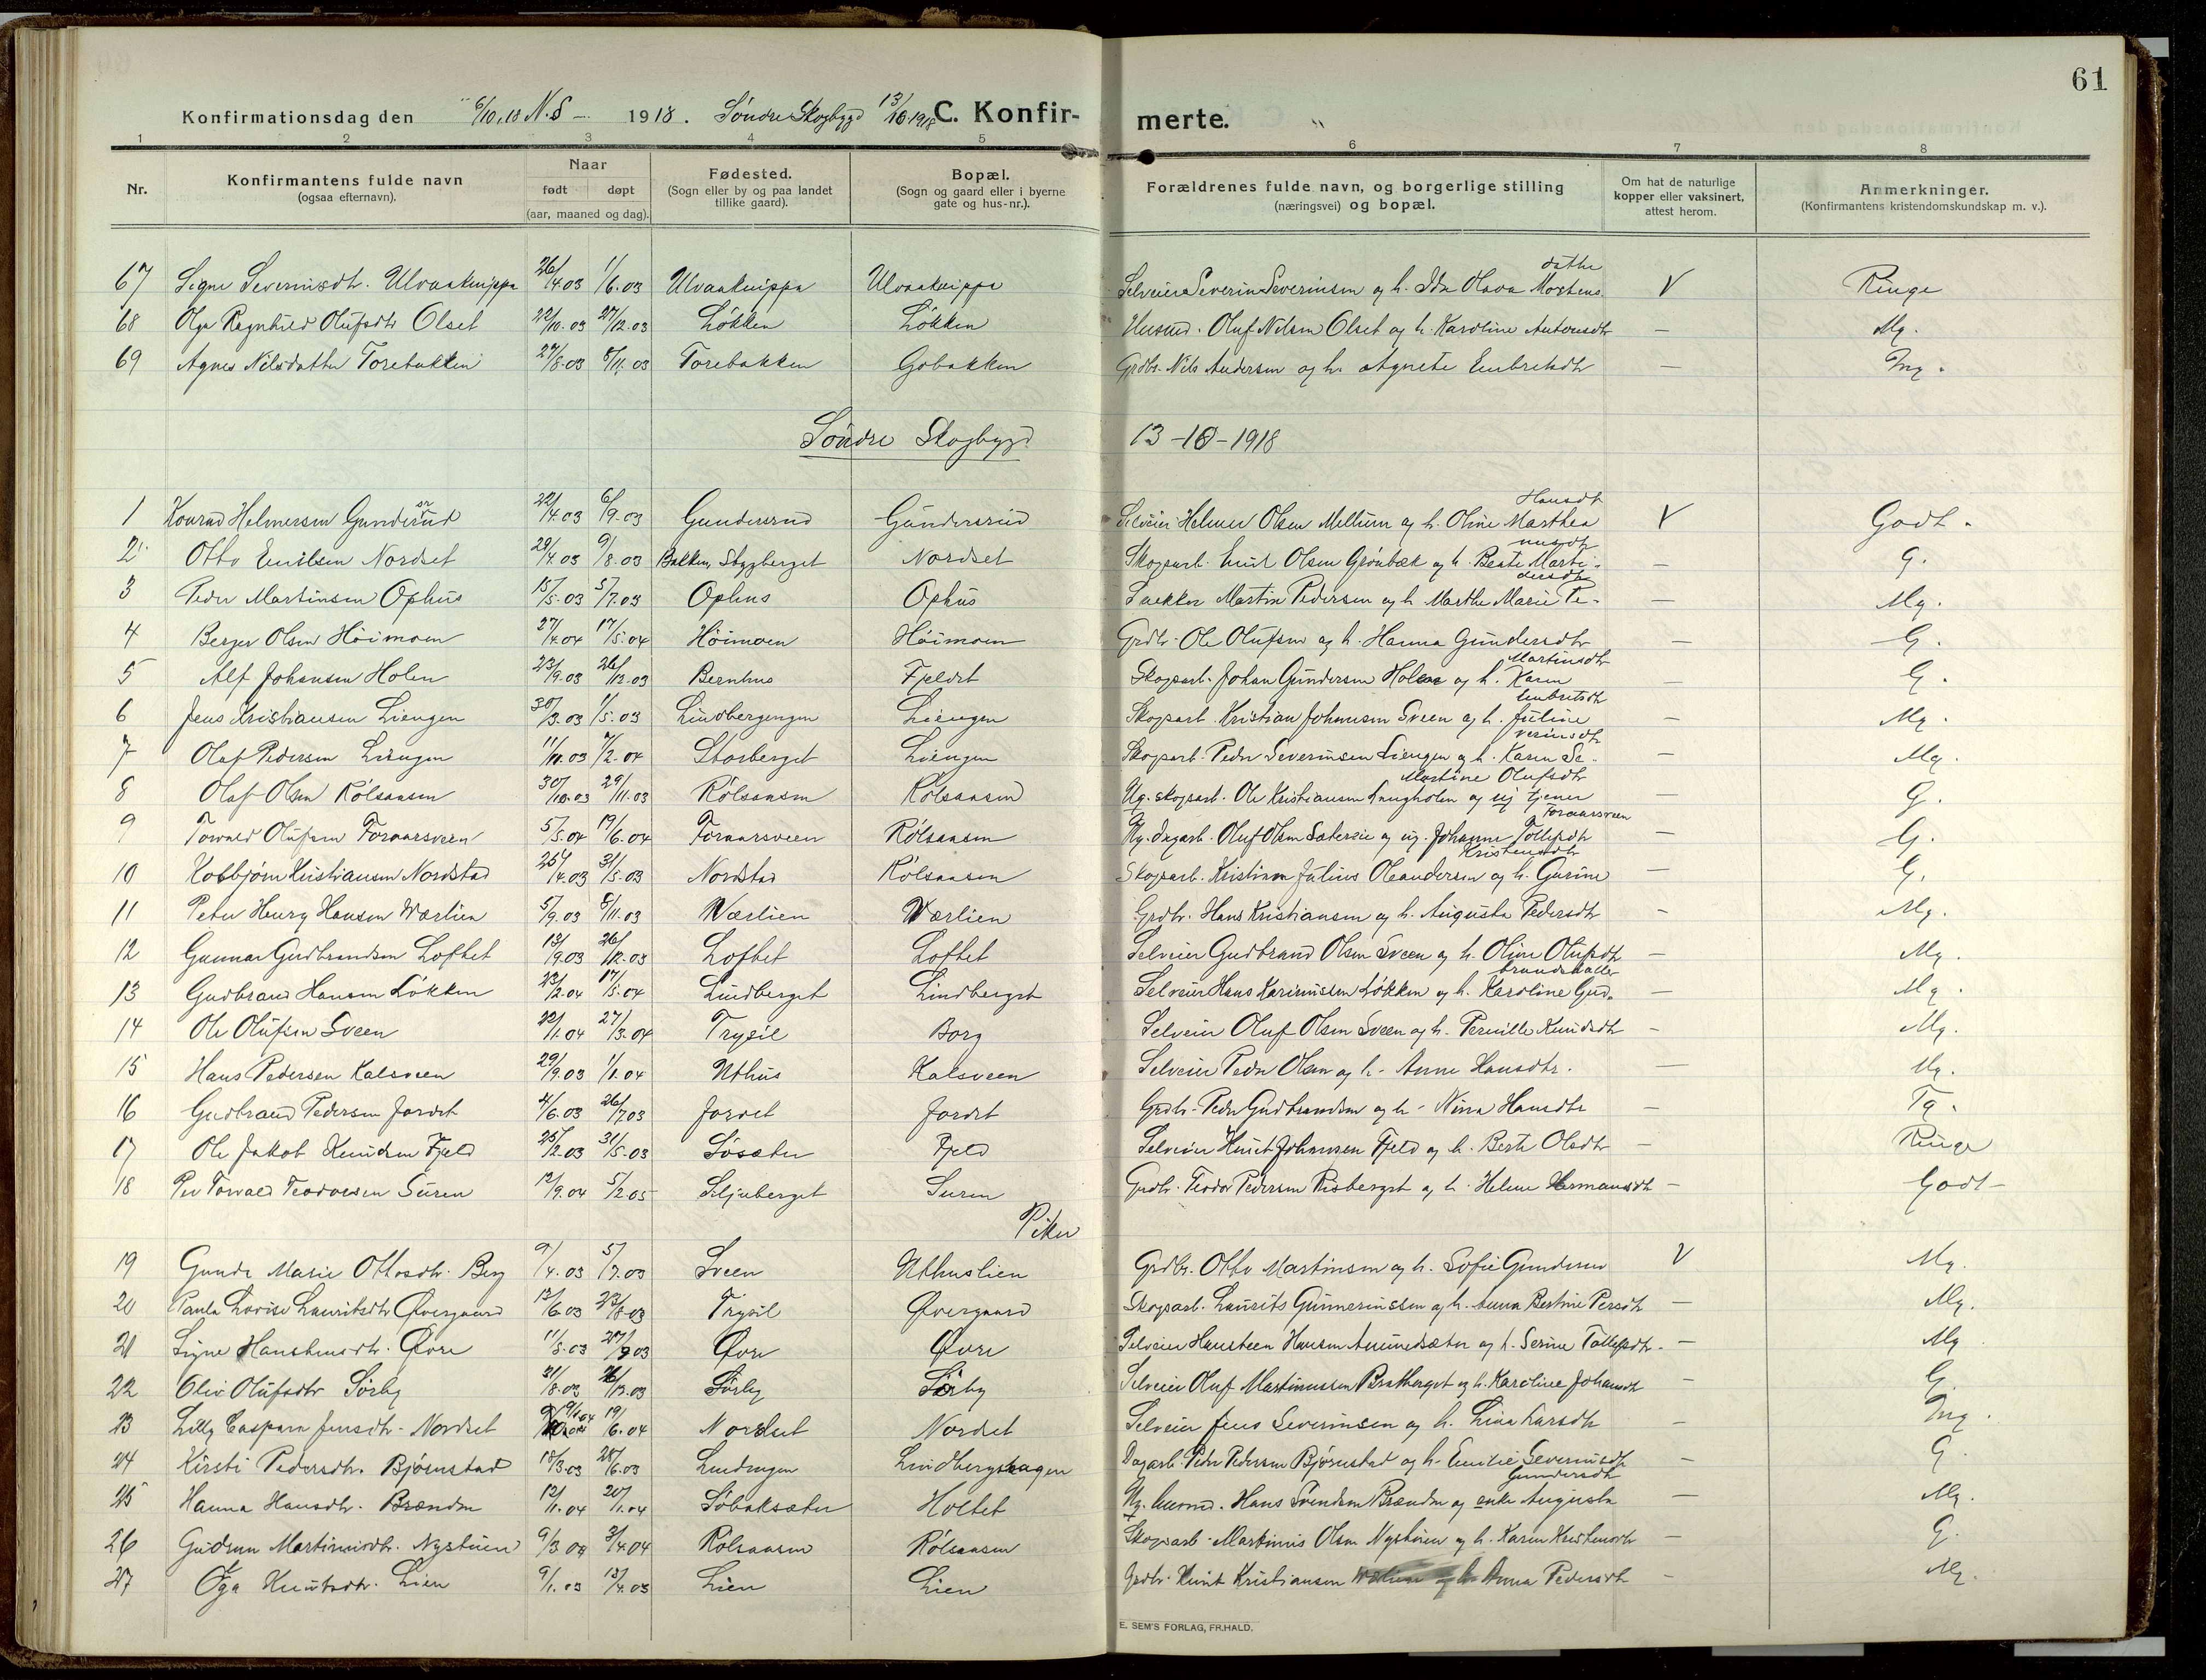 61
Konfirmationsdag den 6/10.18 N.S – 1918. Søndre Skogbygd 13/10.1918 C. Konfir- merte.
1 2 3 4 5 6 7 8
Nr. Konfirmantens fulde navn (ogsaa efternavn). Naar født døpt (aar, maaned og dag). Fødested. (Sogn eller by og paa landet tillike gaard). Bopæl. (Sogn og gaard eller i byerne gate og hus-nr.). Forældrenes fulde navn, og borgerlige stilling (næringsvei) og bopæl. Om hat de naturlige kopper eller vaksinert, attest herom. Anmerkninger. (Konfirmantens kristendomskundskap m. v.).
67 Signe Severinsdtr. Ulvaaknippa 26/4.03 1/6.03 Ulvaaknippa Ulvaaknippa Selveier Severin Severinsen og h. Ida Olava Mortensdatter V Ringe
68 Olga Ragnhild Olufsdtr Olset 22/10.03 27/12.03 Løkken Løkken Husmd. Oluf Nilsen Olset og h. Karoline Antonsdtr – Mg.
69 Agnes Nilsdatter Torebakken 27/8.03 8/11.03 Torebakken Gobakken Grdbr. Nils Andersen og h. Agnete Embretsdtr – Mg.
Søndre Skogbygd 13-10-1918
1 Konrad Helmersen Gundersrud 22/4.03 6/9.03 Gundersrud Gundersrud Selveier Helmer Olsen Mellum og h. Oline Marthea Hansdtr V Godt.
2 Otto Emilsen Nordset 29/4.03 9/8.03 Bakken, Stygberget Nordset Skogsarb. Emil Olsen Grønbæk og h. Beate Martinusdtr – G.
3 Peder Martinsen Ophus 15/5.03 5/7.03 Ophus Ophus Snekker Martin Pedersen og h. Marthe Marie Pedersdtr – Mg.
4 Berger Olsen Høimoen 27/4.04 17/5.04 Høimoen Høimoen Grdbr. Ole Olufsen og h. Hanna Gundersdtr – G.
5 Alf Johansen Holen 23/9.03 26/12.03 Bernhus Fjeldet Skogsarb. Johan Gundersen Holen og h. Karen Martinsdtr – G.
6 Jens Kristiansen Liengen 30/3.03 1/5.03 Lindbergengen Liengen Skogsarb. Kristian Johansen Sveen og h. Juline Embretsdtr – Mg.
7 Olaf Pedersen Liengen 11/10.03 7/2.04 Storberget Liengen Skogsarb. Peder Severinsen Liengen og h. Karen Severinsdtr – Mg.
8 Olaf Olsen Rølsaasen 30/10.03 29/11.03 Rølsaasen Rølsaasen Ug. skogsarb. Ole Kristiansen Haugholen og ug. tjener Martine Olufsdtr – G.
9 Torvald Olufsen Foraarsveen 5/5.04 19/6.04 Foraarsveen Rølsaasen Ug. dagarb. Oluf Olsen Sætersie og ug. Johanne Tollefsdtr Foraarsveen – G.
10 Kolbjørn Kristiansen Nordstad 25/4.03 31/5.03 Nordstad Rølsaasen Skogsarb. Kristian Julius Oleandersen og h. Gurine Kristensdtr – G.
11 Peter Henry Hansen Wærlien 5/9.03 8/11.03 Wærlien Wærlien Grdbr. Hans Kristiansen og h. Augusta Pedersdtr – Mg.
12 Gunnar Gudbrandsen Loftet 13/9.03 26/12.03 Loftet Loftet Selveier Gudbrand Olsen Sveen og h. Oline Olufsdtr – Mg.
13 Gudbrand Hansen Løkken 23/2.04 17/5.04 Lindberget Lindberget Selveier Hans Karinussen Løkken og h. Karoline Gudbrandsdatter – Mg.
14 Ole Olufsen Sveen 22/1.04 27/3.04 Trysil Borg Selveier Oluf Olsen Sveen og h. Pernille Knudsdtr – Mg.
15 Hans Pedersen Kalsveen 29/9.03 1/1.04 Uthus Kalsveen Selveier Peder Olsen og h. Anne Hansdtr. – Mg.
16 Gudbrand Pedersen Jordet 4/6.03 26/7.03 Jordet Jordet Grdbr. Peder Gudbrandsen og h. Nina Hansdtr – Tg.
17 Ole Jakob Knudsen Fjeld 25/2.03 31/5.03 Søsæter Fjeld Selveier Knut Johansen Fjeld og h. Berte Olsdtr – Ringe
18 Per Torvald Teodorsen Suren 12/9.04 5/2.05 Siljuberget Suren Grdbr. Teodor Pedersen Risberget og h. Helene Hermansdtr – Godt –
Piker
19 Gunda Marie Ottosdtr. Berg 9/4.03 5/7.03 Sveen Uthuslien Grdbr. Otto Martinsen og h. Sofie Gundersen V Mg.
20 Paula Lovise Lauritsdtr Øvergaard 12/6.03 23/8.03 Trysil Øvergaard Skogsarb. Laurits Gunneriussen og h. Anna Bertine Persdtr – Mg.
21 Signe Hanstensdtr. Øvre 11/5.03 27/9.03 Øvre Øvre Selveier Hansteen Hansen Amundsæter og h. Serine Tollefsdtr. – Mg
22 Oliv Olufsdtr Sørby 31/8.03 26/12.03 Sørby Sørby Selveier Oluf Martinussen Bratberget og h. Karoline Johansdtr – G.
23 Lilly Caspara Jensdtr. Nordset 9/1.04 19/6.04 Nordset Nordset Selveier Jens Severinsen og h. Lina Larsdtr – Mg.
24 Kirsti Pedersdtr. Bjørnstad 18/3.03 28/6.03 Lindengen Lindbergshagen Dagarb. Peder Pedersen Bjørnstad og h. Emilie Severinsdtr – G
25 Hanna Hansdtr. Brænden 12/11.04 20/1.04 Søbaksæter Holtet Ug. Hans Svendsen Brænden og enke Augusta Gundersdtr – Mg.
26 Gudrun Martinusdtr. Nystuen 9/3.04 3/4.04 Rølsaasen Rølsaasen Skogsarb. Martinus Olsen Nystuen og h. Karen Kristensdtr – G.
27 Olga Knutsdtr. Lien 9/1.03 13/4.03 Lien Lien Grdbr. Knut Kristiansen og h. Anna Pedersdtr – Mg.
E. SEM'S FORLAG, FR.HALD.